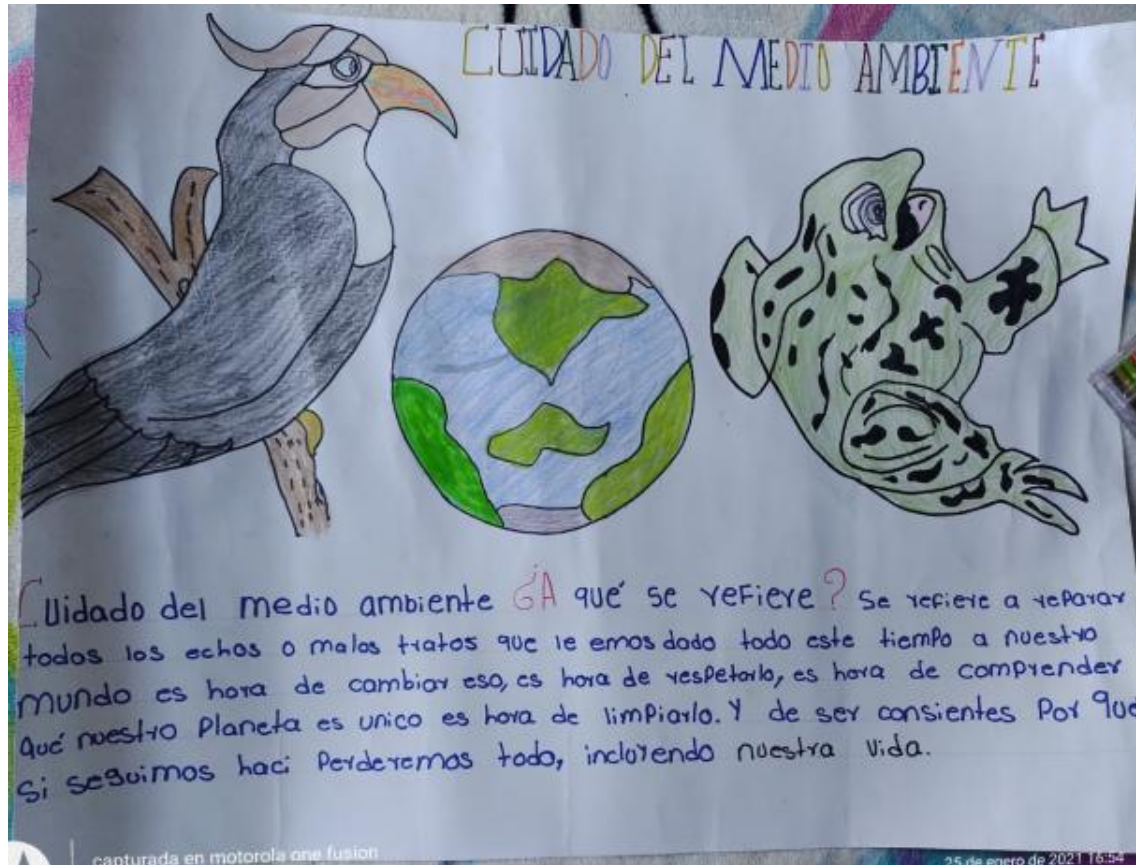 CUIDADO DEL MEDIO AMBIENTE
Cuidado del medio ambiente ¿A qué se refiere? Se refiere a reparar
todos los echos o malos tratos que le emos dado todo este tiempo a nuestro
mundo es hora de cambiar eso, es hora de respetarlo, es hora de comprender
qué nuestro Planeta es unico es hora de limpiarlo. Y de ser consientes Por que
si seguimos haci Perderemos todo, incluyendo nuestra vida.
capturada en motorola one fusion
25 de enero de 2021 16:54